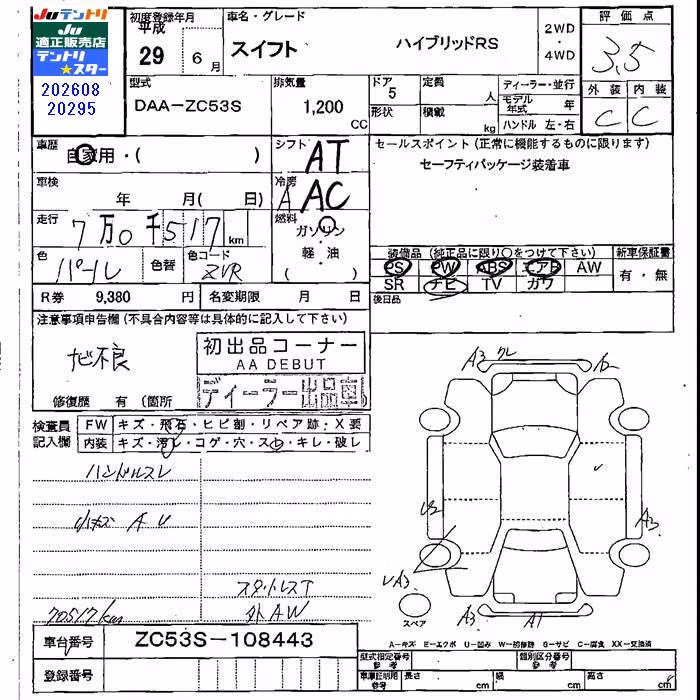 Juテントリ
Ju
適正販売店
テントリ
★スター
202608
20295
初度登録年月
平成
29 6月
車名・グレード
スイフト ハイブリッドRS
2WD
・
4WD
評価点
3.5
型式
DAA-ZC53S
排気量
1,200
CC
ドア
5
形状
定員
人
積載
kg
ディーラー・並行
モデル年式 年
ハンドル 左・右
外装 内装
C C
車歴
自家用・( )
シフト
AT
セールスポイント(正常に機能するものに限ります)
セーフティパッケージ装着車
車検
年 月( 日)
冷房
A AC
走行
7万0千517km
燃料
ガソリン
・
軽・油
( )
色
パール
色替
色コード
ZVR
装備品(純正品に限り○をつけて下さい)
新車保証書
PS PW ABS エアB AW
SR ナビ TV カワ
有・無
R券 9,380 円
名変期限 月 日
後日品
注意事項申告欄(不具合内容等は具体的に記入して下さい)
ナビ不良
初出品コーナー
AA DEBUT
ディーラー出品車
修復歴 有(箇所
検査員
記入欄
FW キズ・飛石・ヒビ割・リペア跡・X要
内装 キズ・汚レ・コゲ・穴・スレ・キレ・破レ
ハンドルスレ
小キズ A U
スタットレスT
外AW
70517km
A3
U2
A3
UA3
スペア
A3
A1
車台番号 ZC53S-108443
登録番号
A-キズ E-エクボ U-凹み W-補修跡 S-サビ C-腐食 XX-交換済
型式指定番号
参考
類別区分番号
参考
車庫証明用
参考
長さ cm 幅 cm 高さ cm